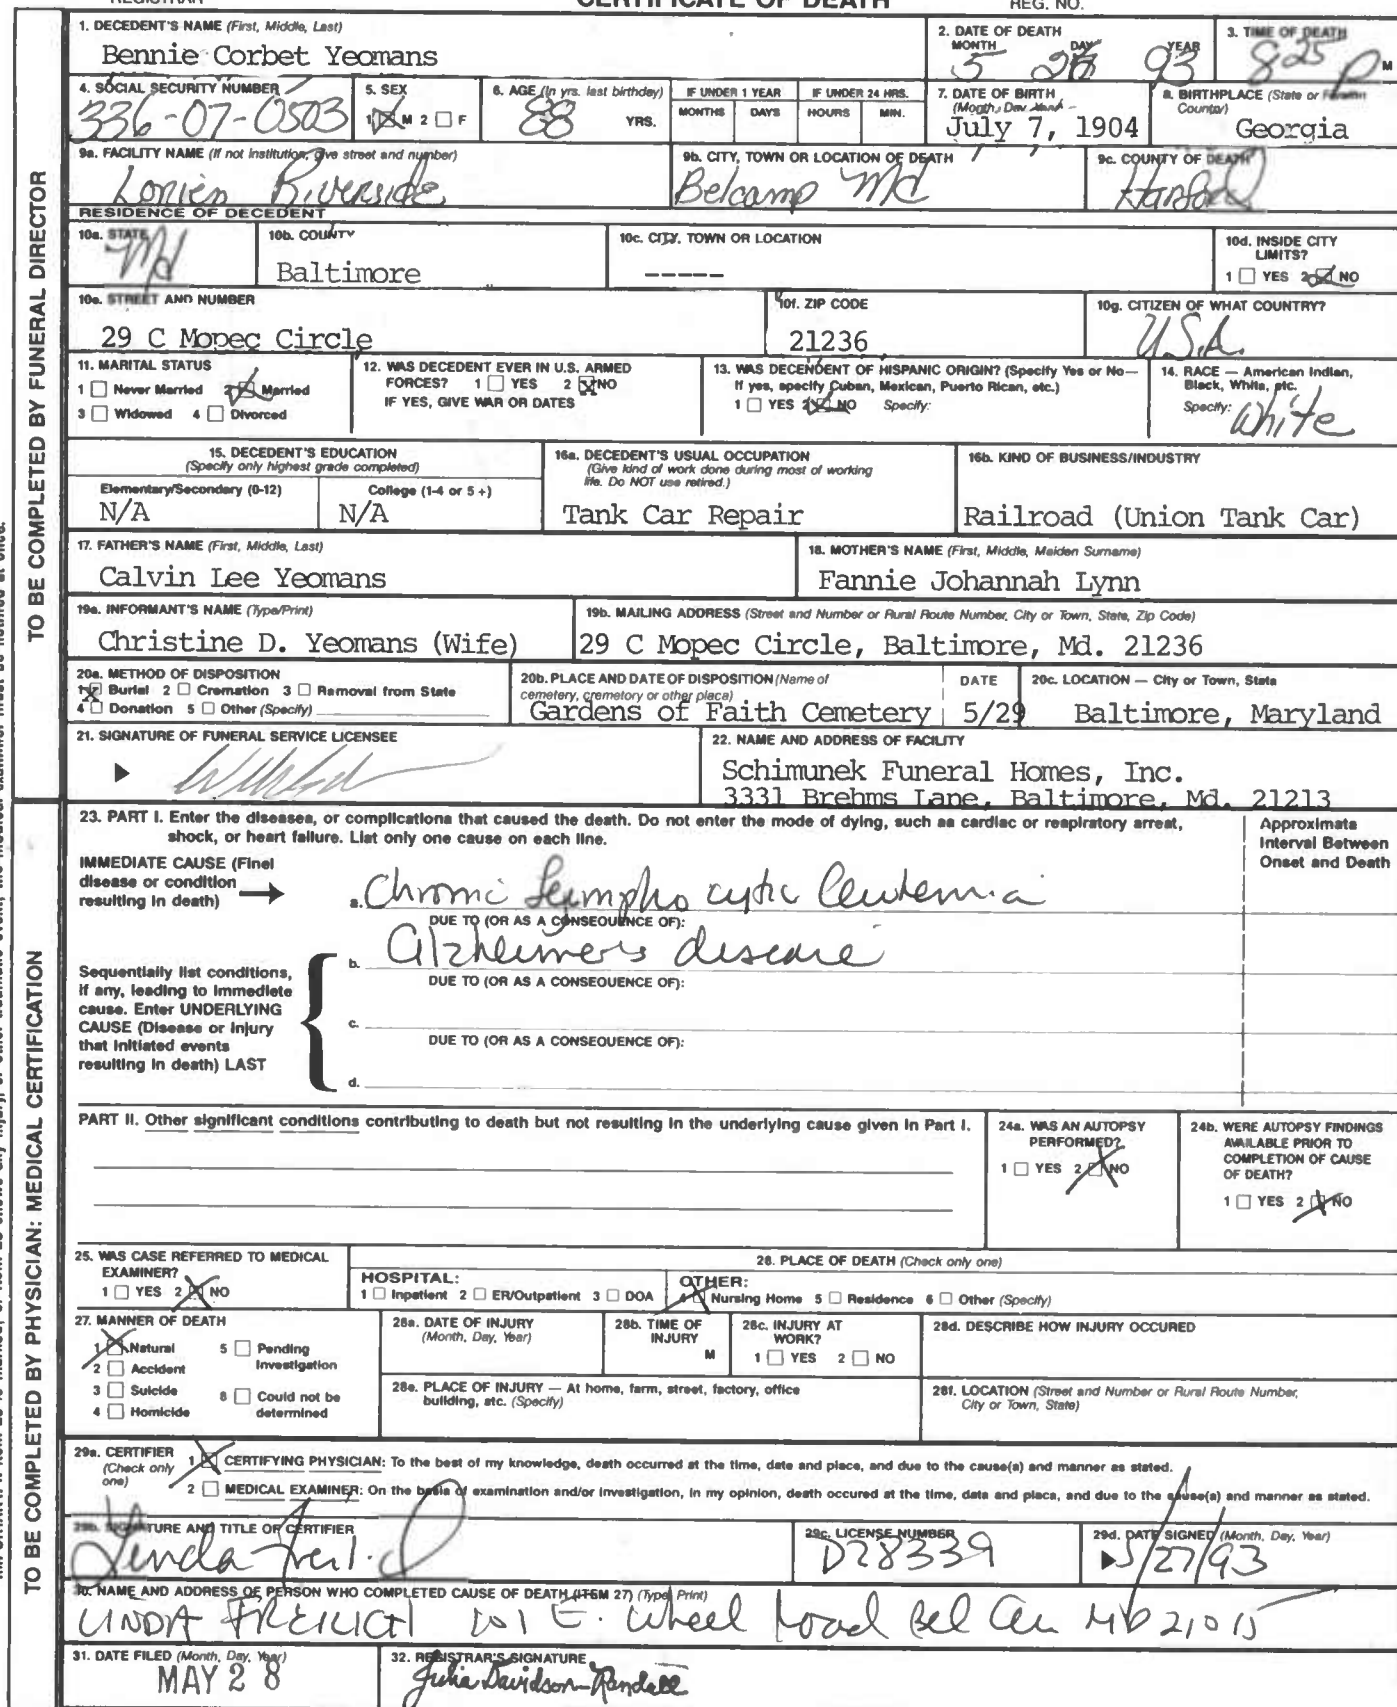 REGISTRAR CERTIFICATE OF DEATH REG. NO.
TO BE COMPLETED BY FUNERAL DIRECTOR
1. DECEDENT'S NAME (First, Middle, Last)
Bennie Corbet Yeomans
2. DATE OF DEATH
MONTH DAY YEAR
5 26 93
3. TIME OF DEATH
825 P M
4. SOCIAL SECURITY NUMBER
336-07-0503
5. SEX
1 ☒ M 2 ☐ F
6. AGE (In yrs. last birthday)
88 YRS.
IF UNDER 1 YEAR
MONTHS DAYS
IF UNDER 24 HRS.
HOURS MIN.
7. DATE OF BIRTH
(Month, Day, Year)
July 7, 1904
8. BIRTHPLACE (State or Foreign
Country)
Georgia
9a. FACILITY NAME (If not institution, give street and number)
Lorien Riverside
9b. CITY, TOWN OR LOCATION OF DEATH
Belcamp Md
9c. COUNTY OF DEATH
Harford
RESIDENCE OF DECEDENT
10a. STATE
Md
10b. COUNTY
Baltimore
10c. CITY, TOWN OR LOCATION
-----
10d. INSIDE CITY
LIMITS?
1 ☐ YES 2 ☒ NO
10e. STREET AND NUMBER
29 C Mopec Circle
10f. ZIP CODE
21236
10g. CITIZEN OF WHAT COUNTRY?
U.S.A.
11. MARITAL STATUS
1 ☐ Never Married 2 ☒ Married
3 ☐ Widowed 4 ☐ Divorced
12. WAS DECEDENT EVER IN U.S. ARMED
FORCES? 1 ☐ YES 2 ☒ NO
IF YES, GIVE WAR OR DATES
13. WAS DECENDENT OF HISPANIC ORIGIN? (Specify Yes or No—
If yes, specify Cuban, Mexican, Puerto Rican, etc.)
1 ☐ YES 2 ☒ NO Specify:
14. RACE — American Indian,
Black, White, etc.
Specify: White
15. DECEDENT'S EDUCATION
(Specify only highest grade completed)
Elementary/Secondary (0-12) College (1-4 or 5 +)
N/A N/A
16a. DECEDENT'S USUAL OCCUPATION
(Give kind of work done during most of working
life. Do NOT use retired.)
Tank Car Repair
16b. KIND OF BUSINESS/INDUSTRY
Railroad (Union Tank Car)
17. FATHER'S NAME (First, Middle, Last)
Calvin Lee Yeomans
18. MOTHER'S NAME (First, Middle, Maiden Surname)
Fannie Johannah Lynn
19a. INFORMANT'S NAME (Type/Print)
Christine D. Yeomans (Wife)
19b. MAILING ADDRESS (Street and Number or Rural Route Number, City or Town, State, Zip Code)
29 C Mopec Circle, Baltimore, Md. 21236
20a. METHOD OF DISPOSITION
1 ☒ Burial 2 ☐ Cremation 3 ☐ Removal from State
4 ☐ Donation 5 ☐ Other (Specify)
20b. PLACE AND DATE OF DISPOSITION (Name of
cemetery, crematory or other place)
Gardens of Faith Cemetery
DATE
5/29
20c. LOCATION — City or Town, State
Baltimore, Maryland
21. SIGNATURE OF FUNERAL SERVICE LICENSEE
22. NAME AND ADDRESS OF FACILITY
Schimunek Funeral Homes, Inc.
3331 Brehms Lane, Baltimore, Md. 21213
TO BE COMPLETED BY PHYSICIAN: MEDICAL CERTIFICATION
23. PART I. Enter the diseases, or complications that caused the death. Do not enter the mode of dying, such as cardiac or respiratory arrest,
shock, or heart failure. List only one cause on each line.
Approximate
Interval Between
Onset and Death
IMMEDIATE CAUSE (Final
disease or condition
resulting in death)
a. Chronic Lympho cytic leukemia
DUE TO (OR AS A CONSEQUENCE OF):
b. Alzheimers disease
DUE TO (OR AS A CONSEQUENCE OF):
Sequentially list conditions,
if any, leading to immediate
cause. Enter UNDERLYING
CAUSE (Disease or injury
that initiated events
resulting in death) LAST
c.
DUE TO (OR AS A CONSEQUENCE OF):
d.
PART II. Other significant conditions contributing to death but not resulting in the underlying cause given in Part I.
24a. WAS AN AUTOPSY
PERFORMED?
1 ☐ YES 2 ☒ NO
24b. WERE AUTOPSY FINDINGS
AVAILABLE PRIOR TO
COMPLETION OF CAUSE
OF DEATH?
1 ☐ YES 2 ☒ NO
25. WAS CASE REFERRED TO MEDICAL
EXAMINER?
1 ☐ YES 2 ☒ NO
26. PLACE OF DEATH (Check only one)
HOSPITAL:
1 ☐ Inpatient 2 ☐ ER/Outpatient 3 ☐ DOA
OTHER:
4 ☒ Nursing Home 5 ☐ Residence 6 ☐ Other (Specify)
27. MANNER OF DEATH
1 ☒ Natural 5 ☐ Pending
Investigation
2 ☐ Accident
3 ☐ Suicide 6 ☐ Could not be
determined
4 ☐ Homicide
28a. DATE OF INJURY
(Month, Day, Year)
28b. TIME OF
INJURY
M
28c. INJURY AT
WORK?
1 ☐ YES 2 ☐ NO
28d. DESCRIBE HOW INJURY OCCURED
28e. PLACE OF INJURY — At home, farm, street, factory, office
building, etc. (Specify)
28f. LOCATION (Street and Number or Rural Route Number,
City or Town, State)
29a. CERTIFIER
(Check only
one)
1 ☒ CERTIFYING PHYSICIAN: To the best of my knowledge, death occurred at the time, date and place, and due to the cause(s) and manner as stated.
2 ☐ MEDICAL EXAMINER: On the basis of examination and/or investigation, in my opinion, death occured at the time, date and place, and due to the cause(s) and manner as stated.
29b. SIGNATURE AND TITLE OF CERTIFIER
Linda
29c. LICENSE NUMBER
D28339
29d. DATE SIGNED (Month, Day, Year)
5/27/93
30. NAME AND ADDRESS OF PERSON WHO COMPLETED CAUSE OF DEATH (ITEM 27) (Type/Print)
LINDA FREILICH 101 E. Wheel Road Bel Air MD 21015
31. DATE FILED (Month, Day, Year)
MAY 28
32. REGISTRAR'S SIGNATURE
Julia Davidson-Randall